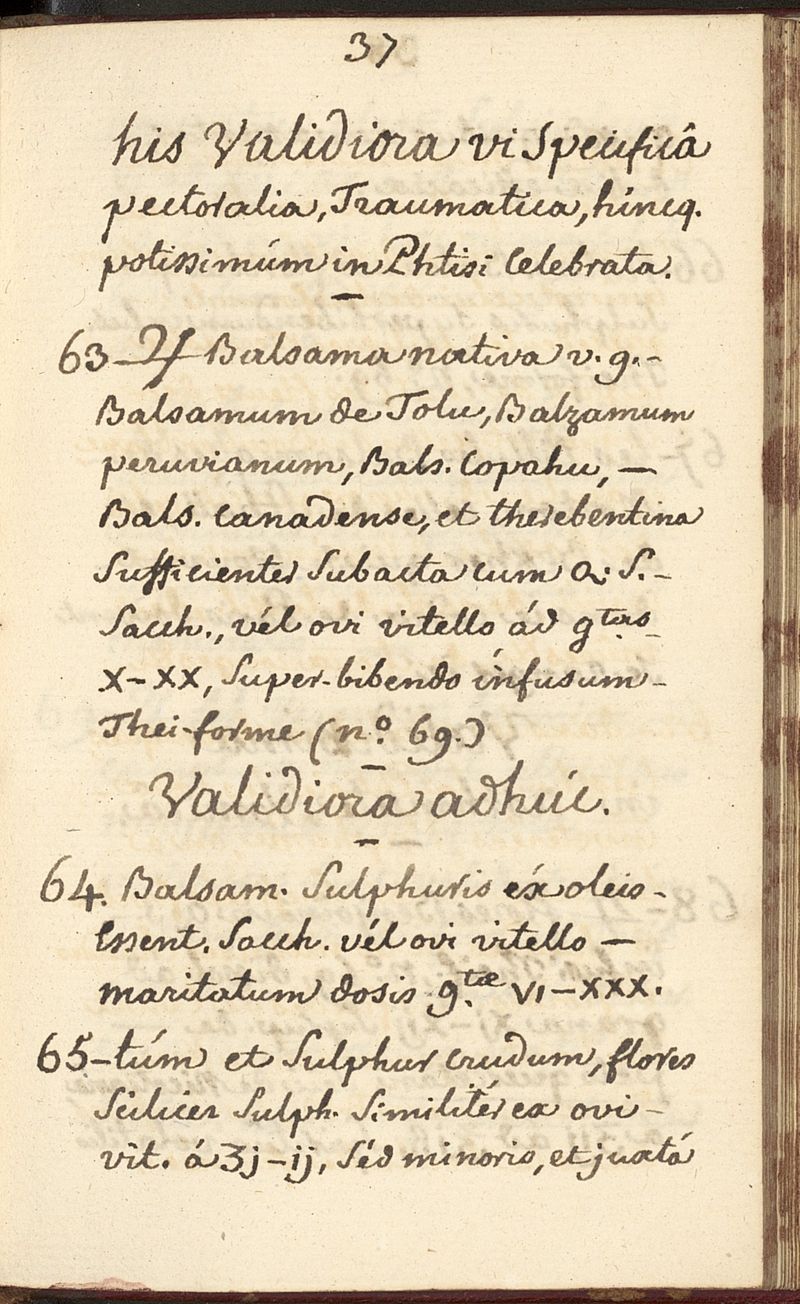 37
his Validiora vi Specificâ
pectoralia, Traumatica, híncq.
potissimúm in Phtisi Celebrata.
63 - ♃ Balsama nativa v. g. -
Balsamum de Tolu, Balzamum
peruvianum, Bals. Copahu, —
Bals. Canadense, et therebentina
Sufficienter Subacta cum Q. S. -
Sacch., vél ovi vitello ád gtas
X - XX, Super-bibendo infusum -
Thei-forme (nº. 69.)
Validiora adhúc.
64. Balsam. Sulphuris éx oleis -
Essent. Sacch. vél ovi vitello —
maritatum dosis gtæ. VI - XXX.
65 - túm et Sulphur crudum, flores
Scilicet Sulph. Similitér ex ovi -
vit. á ʒj - ij, Séd minoris, et juxtá